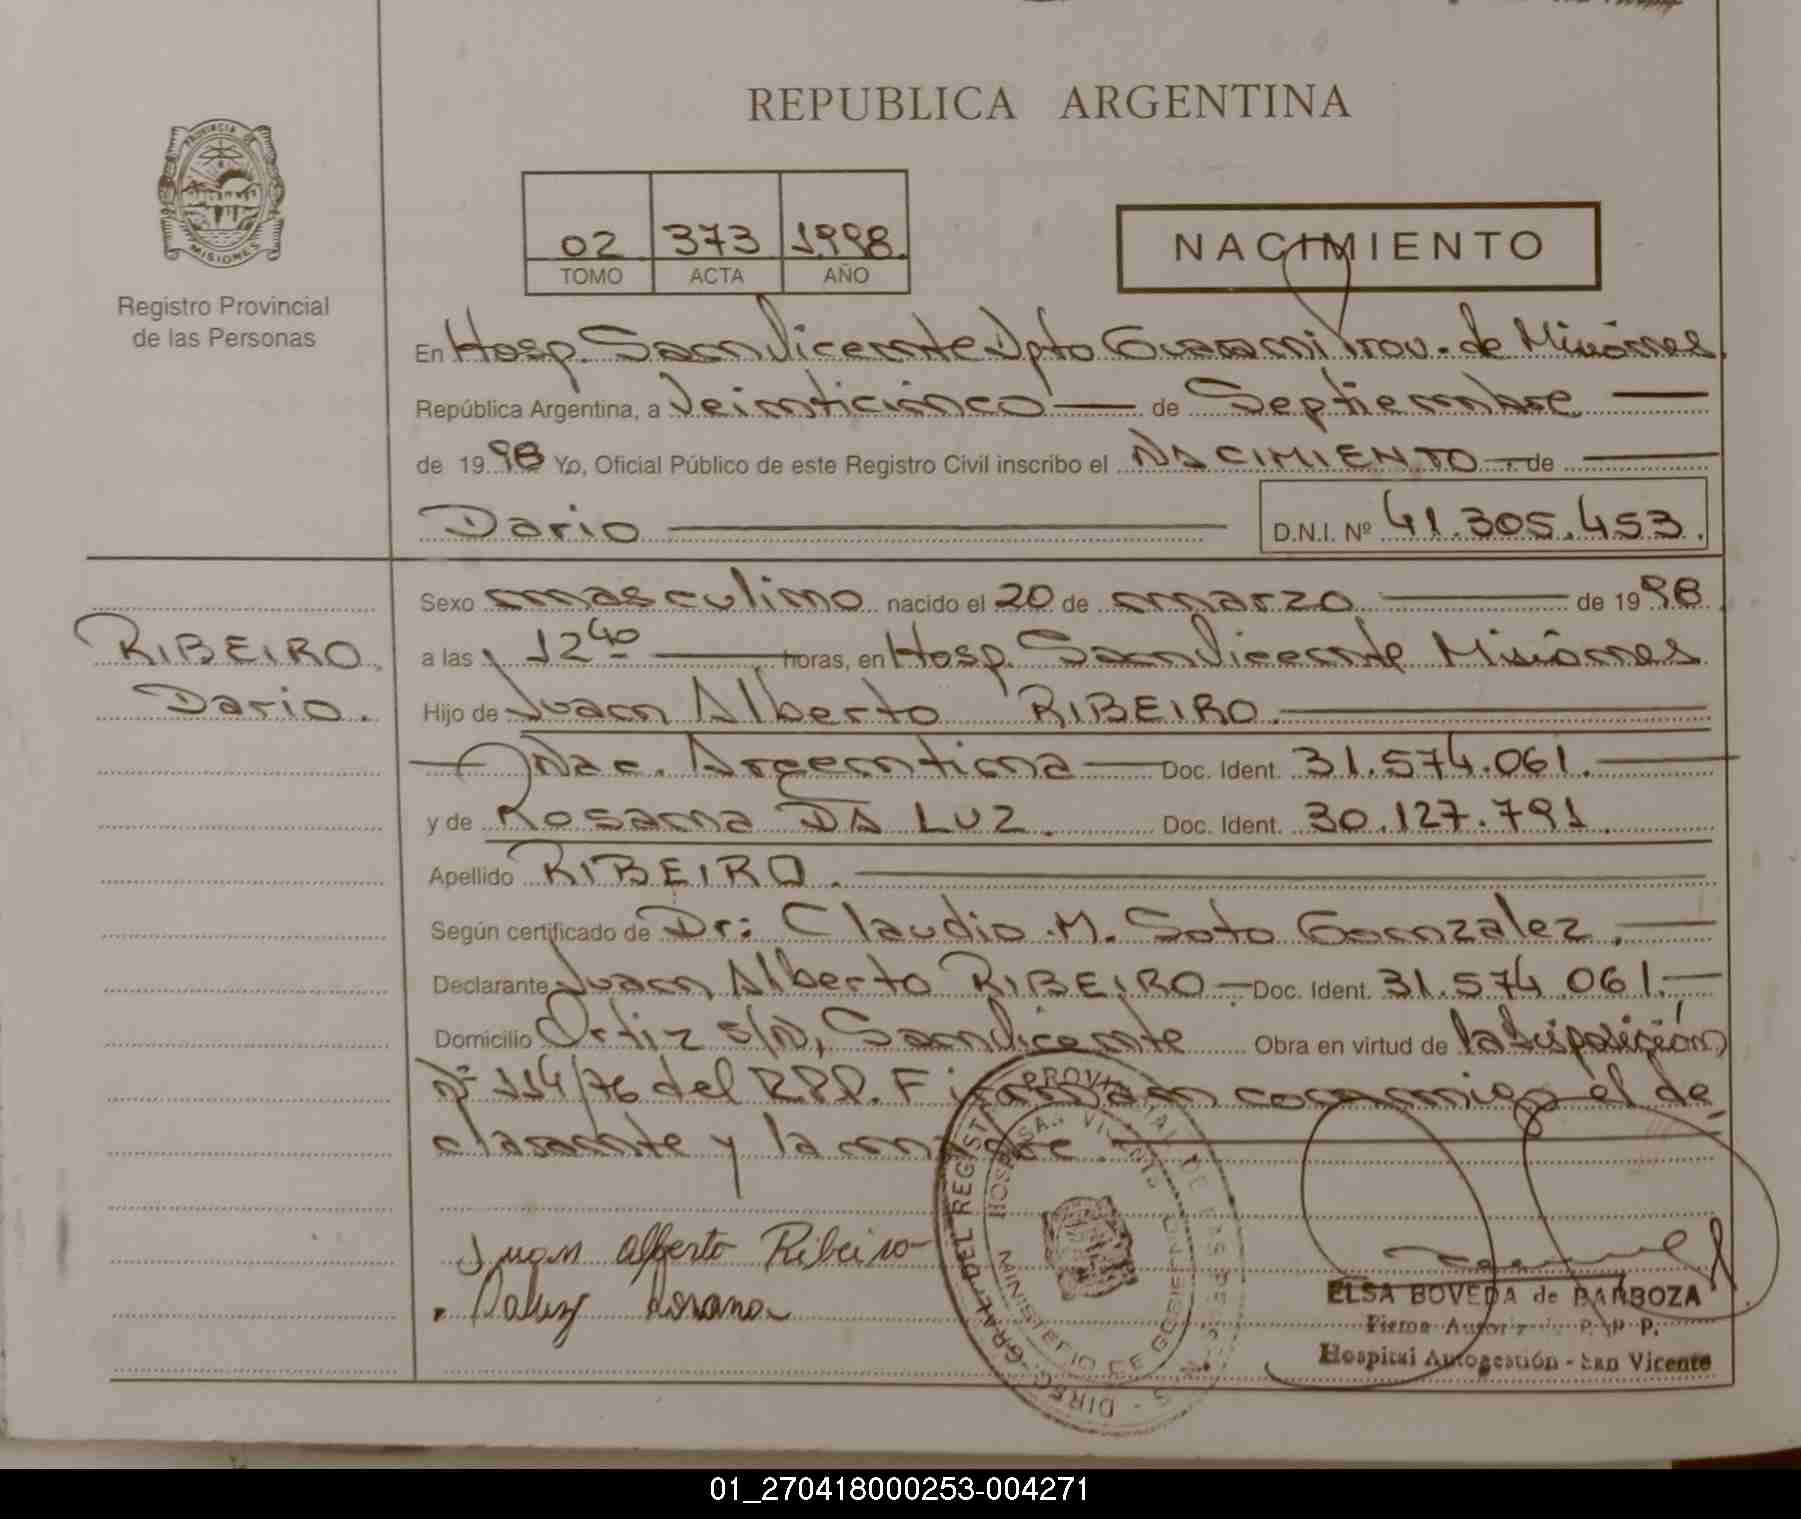 REPUBLICA ARGENTINA
PROVINCIA DE
MISIONES
Registro Provincial
de las Personas
02 373 1998.
TOMO ACTA AÑO
NACIMIENTO
En Hosp. San Vicente Dpto Guarani Prov. de Misiones
República Argentina, a Veinticinco de Septiembre
de 1998 Yo, Oficial Público de este Registro Civil inscribo el NACIMIENTO de
Dario D.N.I. Nº 41.305.453.
RIBEIRO,
Dario.
Sexo masculino nacido el 20 de marzo de 1998
a las 12 40 horas, en Hosp. San Vicente Misiones
Hijo de Juan Alberto RIBEIRO.
Nac. Argentina Doc. Ident. 31.574.061.
y de Rosana DA LUZ. Doc. Ident. 30.127.791.
Apellido RIBEIRO.
Según certificado de Dr: Claudio M. Soto Gonzalez.
Declarante Juan Alberto RIBEIRO Doc. Ident. 31.574.061.
Domicilio Ortiz S/N, San Vicente Obra en virtud de la Disposición
Nº 114/76 del R.P.P. Firman conmigo el de
clarante y la madre.
Juan Alberto Ribeiro
Daluz Rosana
DIREC. GRAL. DEL REGISTRO PROVINCIAL DE LAS PERSONAS
HOSP. SAN VICENTE
MINISTERIO DE GOBIERNO
ELSA BOVEDA de BARBOZA
Firma R. P. P.
Hospital Autogestión - San Vicente
01_270418000253-004271